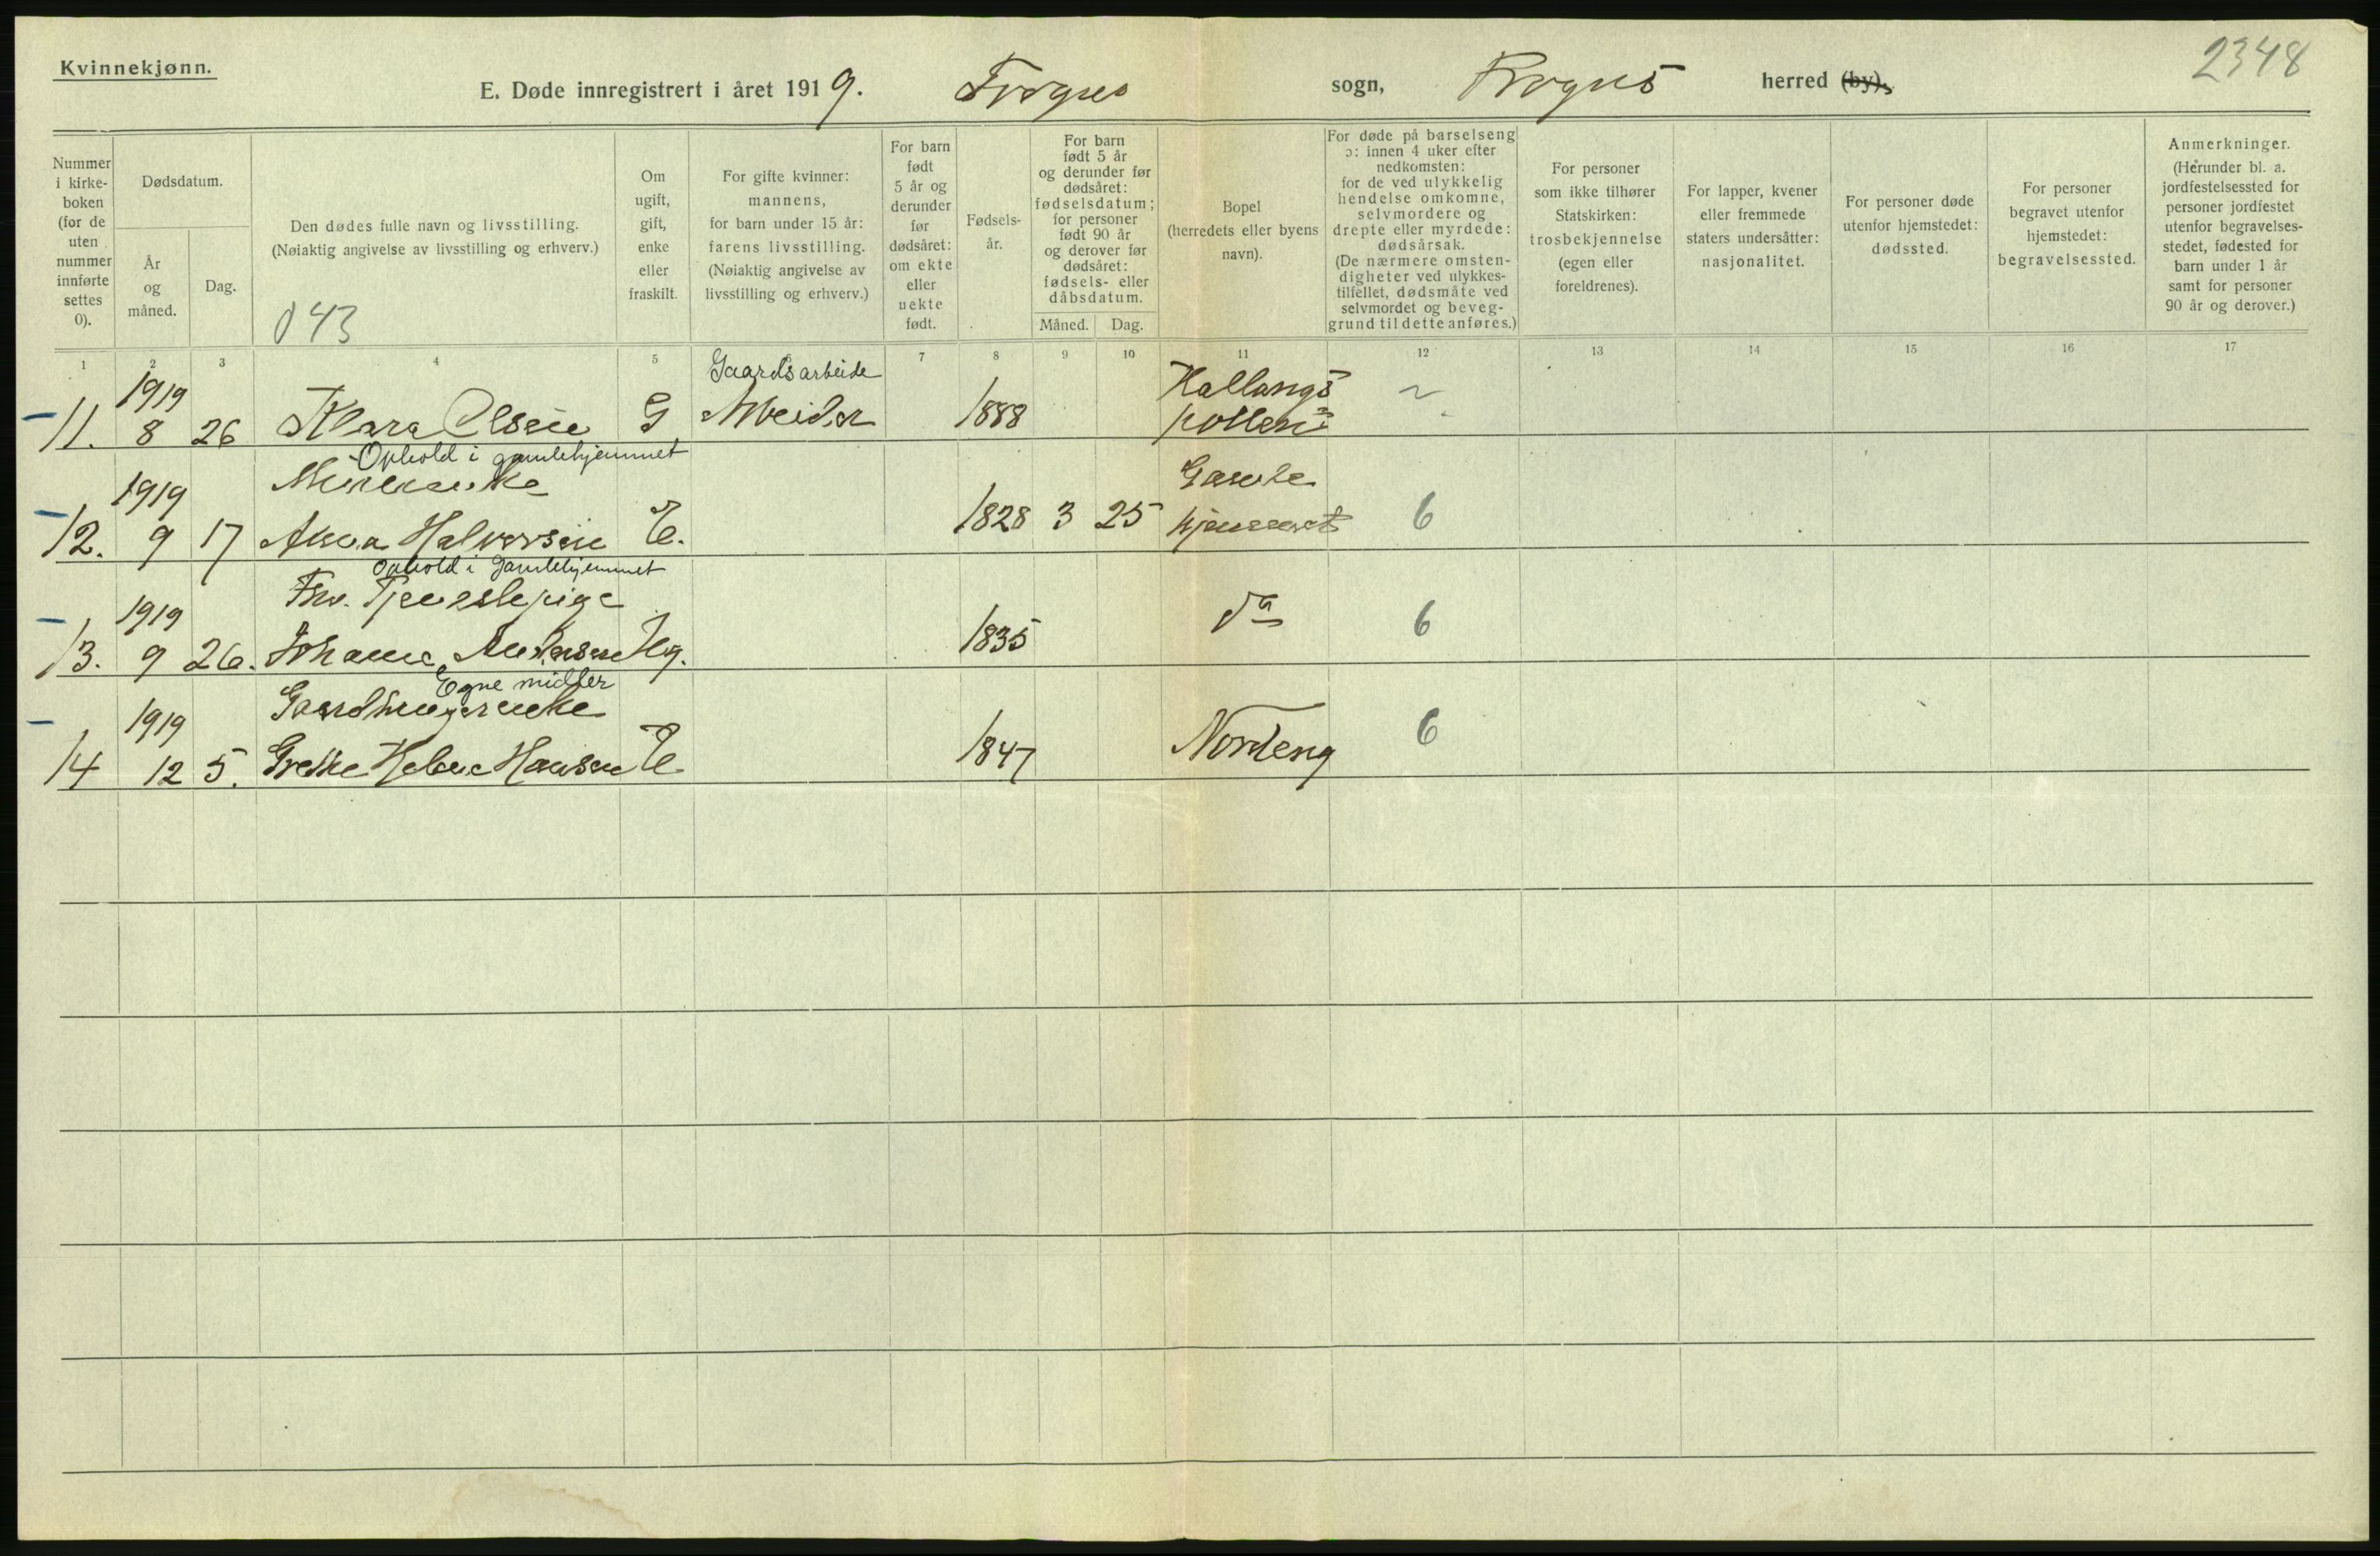 Kvinnekjønn.
2348
E. Døde innregistrert i året 1919. Frogns sogn, Frogns herred (by).
Nummer i kirke-boken (for de uten nummer innførte settes 0).
Dødsdatum.
År og måned.
Dag.
Den dødes fulle navn og livsstilling.
(Nøiaktig angivelse av livsstilling og erhverv.)
043
Om ugift, gift, enke eller fraskilt.
For gifte kvinner: mannens, for barn under 15 år: farens livsstilling. (Nøiaktig angivelse av livsstilling og erhverv.)
For barn født 5 år og derunder før dødsåret: om ekte eller uekte født.
Fødsels-år.
For barn født 5 år og derunder før dødsåret: fødselsdatum; for personer født 90 år og derover før dødsåret: fødsels- eller dåbsdatum.
Måned. Dag.
Bopel (herredets eller byens navn).
For døde på barselseng ɔ: innen 4 uker efter nedkomsten: for de ved ulykkelig hendelse omkomne, selvmordere og drepte eller myrdede: dødsårsak. (De nærmere omsten-digheter ved ulykkes-tilfellet, dødsmåte ved selvmordet og beveg-grund til dette anføres.)
For personer som ikke tilhører Statskirken: trosbekjennelse (egen eller foreldrenes).
For lapper, kvener eller fremmede staters undersåtter: nasjonalitet.
For personer døde utenfor hjemstedet: dødssted.
For personer begravet utenfor hjemstedet: begravelsessted.
Anmerkninger.
(Herunder bl. a. jordfestelsessted for personer jordfestet utenfor begravelses-stedet, fødested for barn under 1 år samt for personer 90 år og derover.)
1 2 3 4 5 6 7 8 9 10 11 12 13 14 15 16 17
1919 Gaardsarbeide Hallangs
11. 8 26 Klara Olsen G Arbeider 1888 pollen
Ophold i gamlehjemmet
1919 Gamle
12. 9 17 Anna Halvorsen E. 1828 3 25 hjemmet 6
Ophold i Gamlehjemmet
1919 Frv. Tjenestepige do 6
13. 9 26. Johanne Andersen Ug. 1835
Egne midler
1919 Gaardbrugerenke
14 12 5. Grethe Helene Hansen E 1847 Nordeng 6